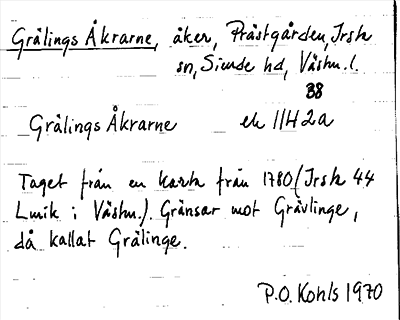 Grälings Åkrarne, åker, Prästgården, Irsta
sn, Siende hd, Västm. l.
38
Grälings Åkrarne ek 11H2a
Taget från en karta från 1780 (Irsta 44
Lmk i Västm.). Gränsar mot Grävlinge,
då kallat Grälinge.
P.O. Kohls 1970